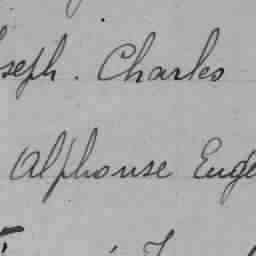 oseph. Charles
Alphonse Euge